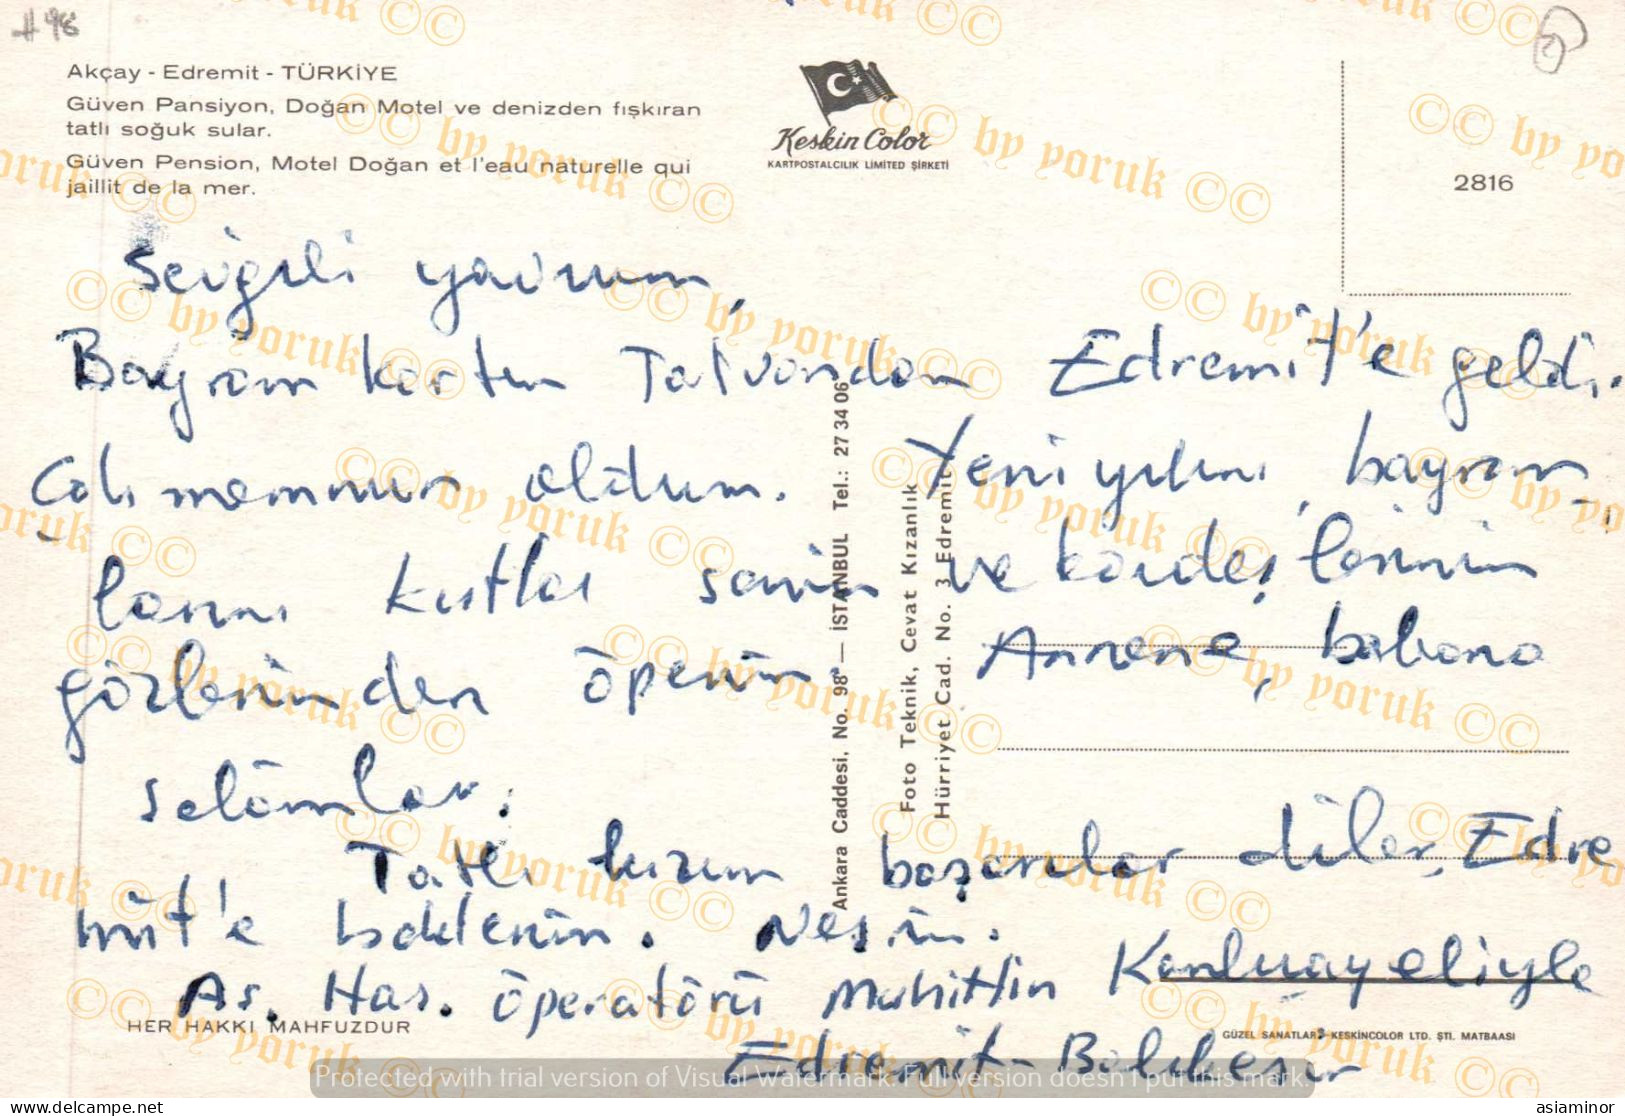 #98
Akçay - Edremit - TÜRKİYE
Güven Pansiyon, Doğan Motel ve denizden fışkıran
tatlı soğuk sular.
Güven Pension, Motel Doğan et l'eau naturelle qui
jaillit de la mer.
Keskin Color
KARTPOSTALCILIK LIMITED ŞİRKETİ
2816
Sevgili yavrum,
Bayram kartın Tatvandan Edremit'e geldi.
Çok memnun oldum. Yeni yılını, bayram
larını kutlar senin ve kardeşlerinin
gözlerinden öperim. Annene, babana
selâmlar.
Tatlı kızım başarılar diler, Edre
mit'e beklerim. Nesrin.
As. Has. operatörü Muhittin eliyle
Edremit - Balıkesir
Ankara Caddesi, No. 98 — İSTANBUL Tel.: 27 34 06
Foto Teknik, Cevat Kızanlık
Hürriyet Cad. No. 3 Edremit
HER HAKKI MAHFUZDUR
GÜZEL SANATLAR: KESKİNCOLOR LTD. ŞTİ. MATBAASI
© © by yoruk © ©
Protected with trial version of Visual Watermark. Full version doesn't put this mark.
www.delcampe.net
asiaminor